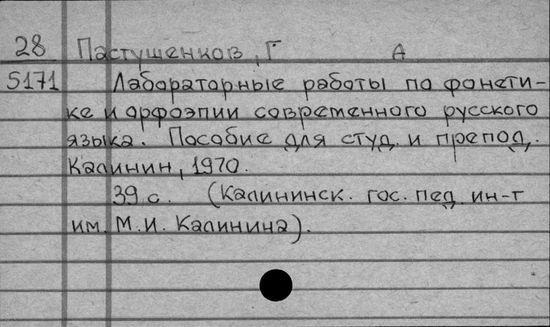 28 Пастушенков, Г А
5171 Лабораторные работы по фонети-
ке и орфоэпии современного русского
языка. Пособие для студ. и препод.
Калинин, 1970.
39 с. (Калининск. гос. пед. ин-т
им. М.И. Калинина).